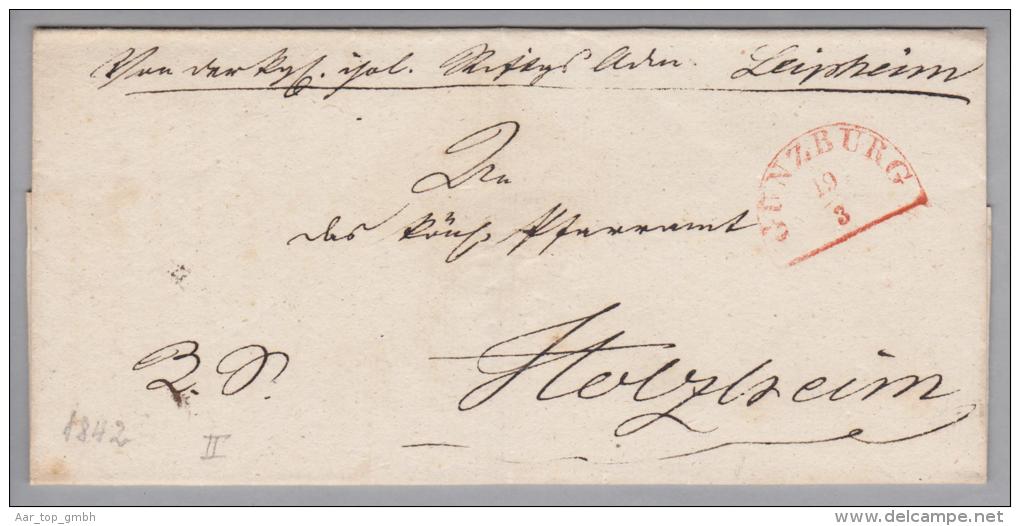 Von der Kgl. Stiftgs Adm. Leipheim
GÜNZBURG
19
3
An
das Königl. Pfarramt
R. S.
Holzheim
1842
II
Aar_top_gmbh
www.delcampe.net